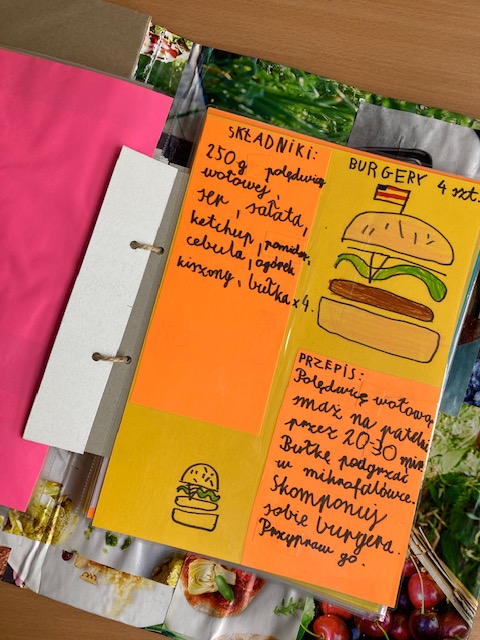 SKŁADNIKI:
250g polędwicy
wołowej,
ser, sałata,
ketchup, pomidor,
cebula, ogórek
kiszony, bułka x 4.
BURGERY 4 szt.
PRZEPIS:
Polędwicę wołową
smaż na patelni
przez 20-30 min.
Bułkę podgrzać
w mikrofalówce.
Skomponuj
sobie burgera.
Przypraw go.